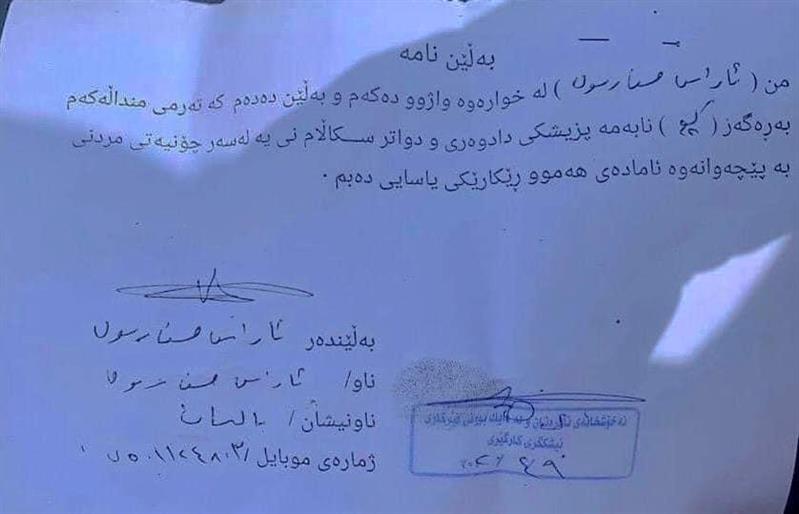 بەڵێن نامە
من ( ئاراس حسن رسول ) لە خوارەوە واژوو دەکەم و بەڵێن دەدەم کە تەرمی منداڵەکەم
بەڕەگەز ( کچ ) نابەمە پزیشکی دادوەری و دواتر سکاڵام نی یە لەسەر چۆنیەتی مردنی
بە پێچەوانەوە ئامادەی هەموو ڕێکارێکی یاسایی دەبم .
بەڵێندەر ئاراس حسن رسول
ناو/ ئاراس حسن رسول
ناونیشان/
ژمارەی موبایل/